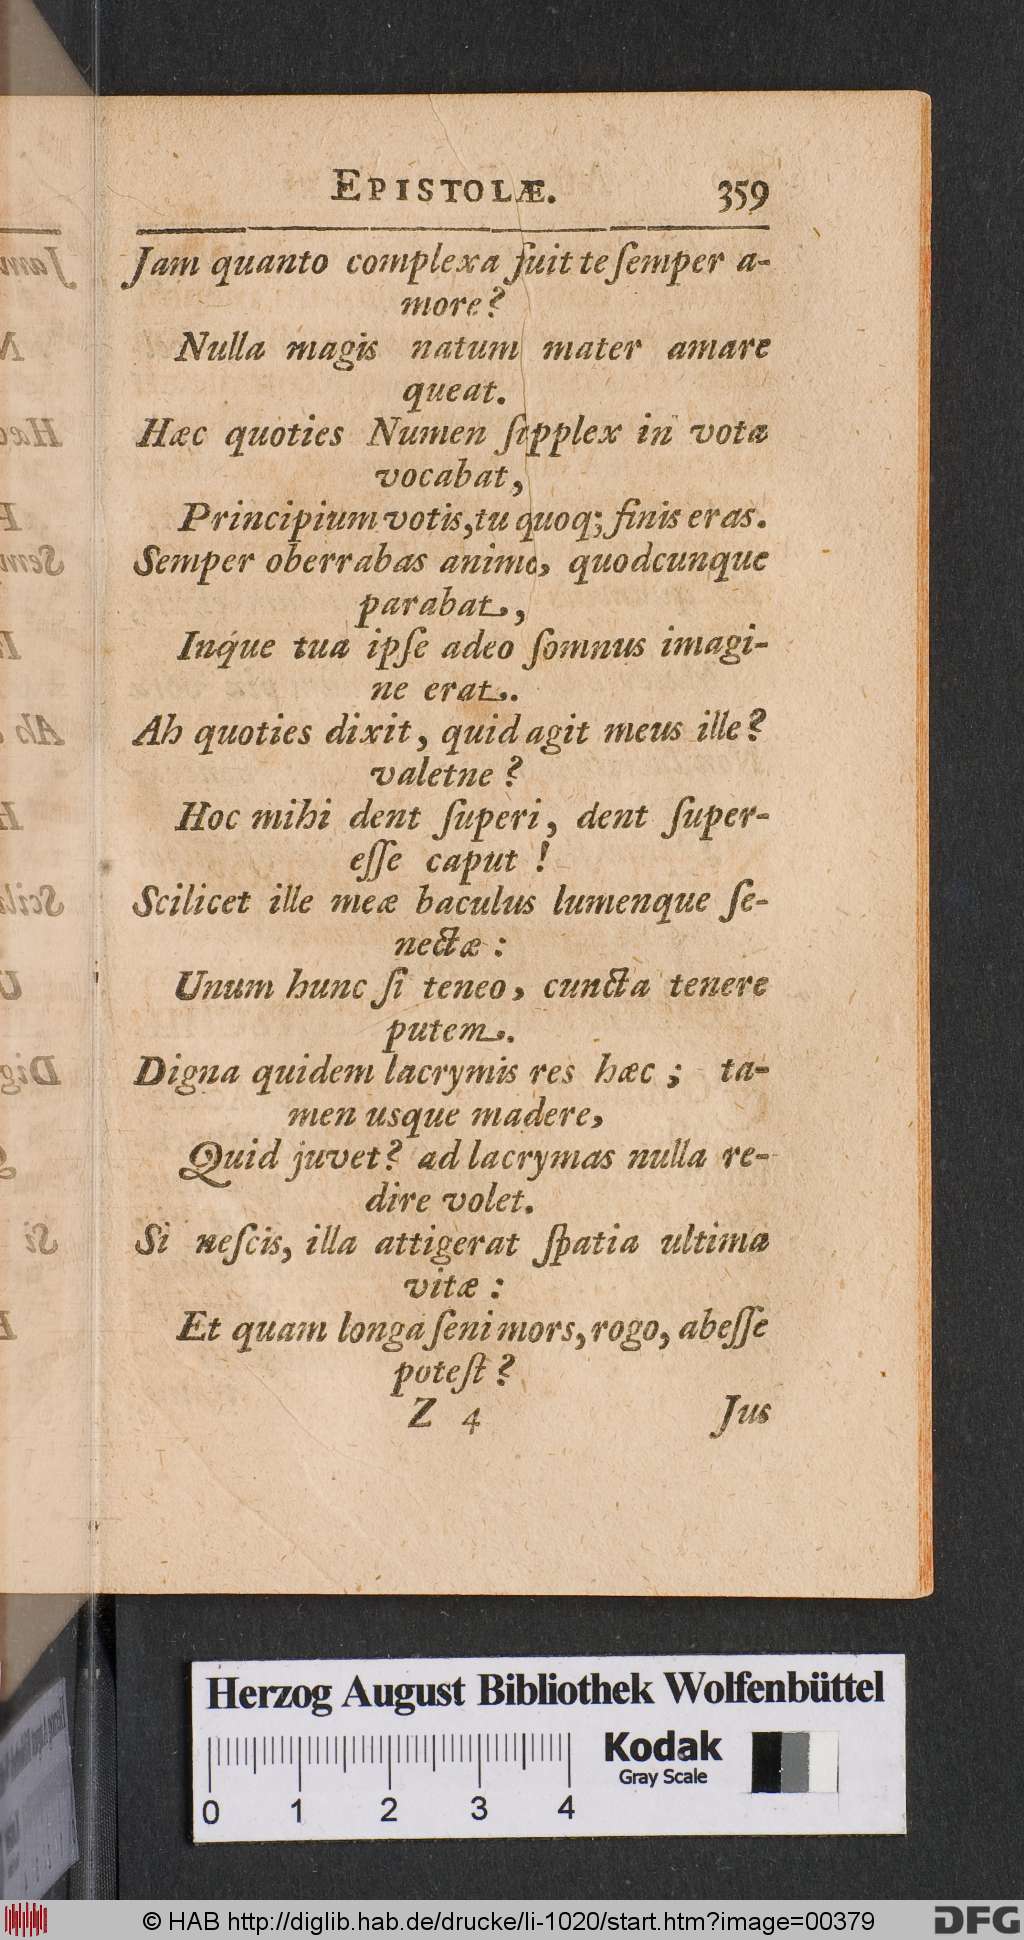 EPISTOLÆ. 359
Jam quanto complexa fuit te ſemper a-
more?
Nulla magis natum mater amare
queat.
Hæc quoties Numen ſupplex in vota
vocabat,
Principium votis, tu quoq; finis eras.
Semper oberrabas animo, quodcunque
parabat,
Inque tua ipſe adeo ſomnus imagi-
ne erat.
Ah quoties dixit, quid agit meus ille?
valetne?
Hoc mihi dent ſuperi, dent ſuper-
eſſe caput!
Scilicet ille meæ baculus lumenque ſe-
nectæ:
Unum hunc ſi teneo, cuncta tenere
putem.
Digna quidem lacrymis res hæc; ta-
men usque madere,
Quid juvet? ad lacrymas nulla re-
dire volet.
Si neſcis, illa attigerat ſpatia ultima
vitæ:
Et quam longa ſeni mors, rogo, abeſſe
poteſt?
Z 4 Jus
Herzog August Bibliothek Wolfenbüttel
Kodak
Gray Scale
0 1 2 3 4
© HAB http://diglib.hab.de/drucke/li-1020/start.htm?image=00379
DFG